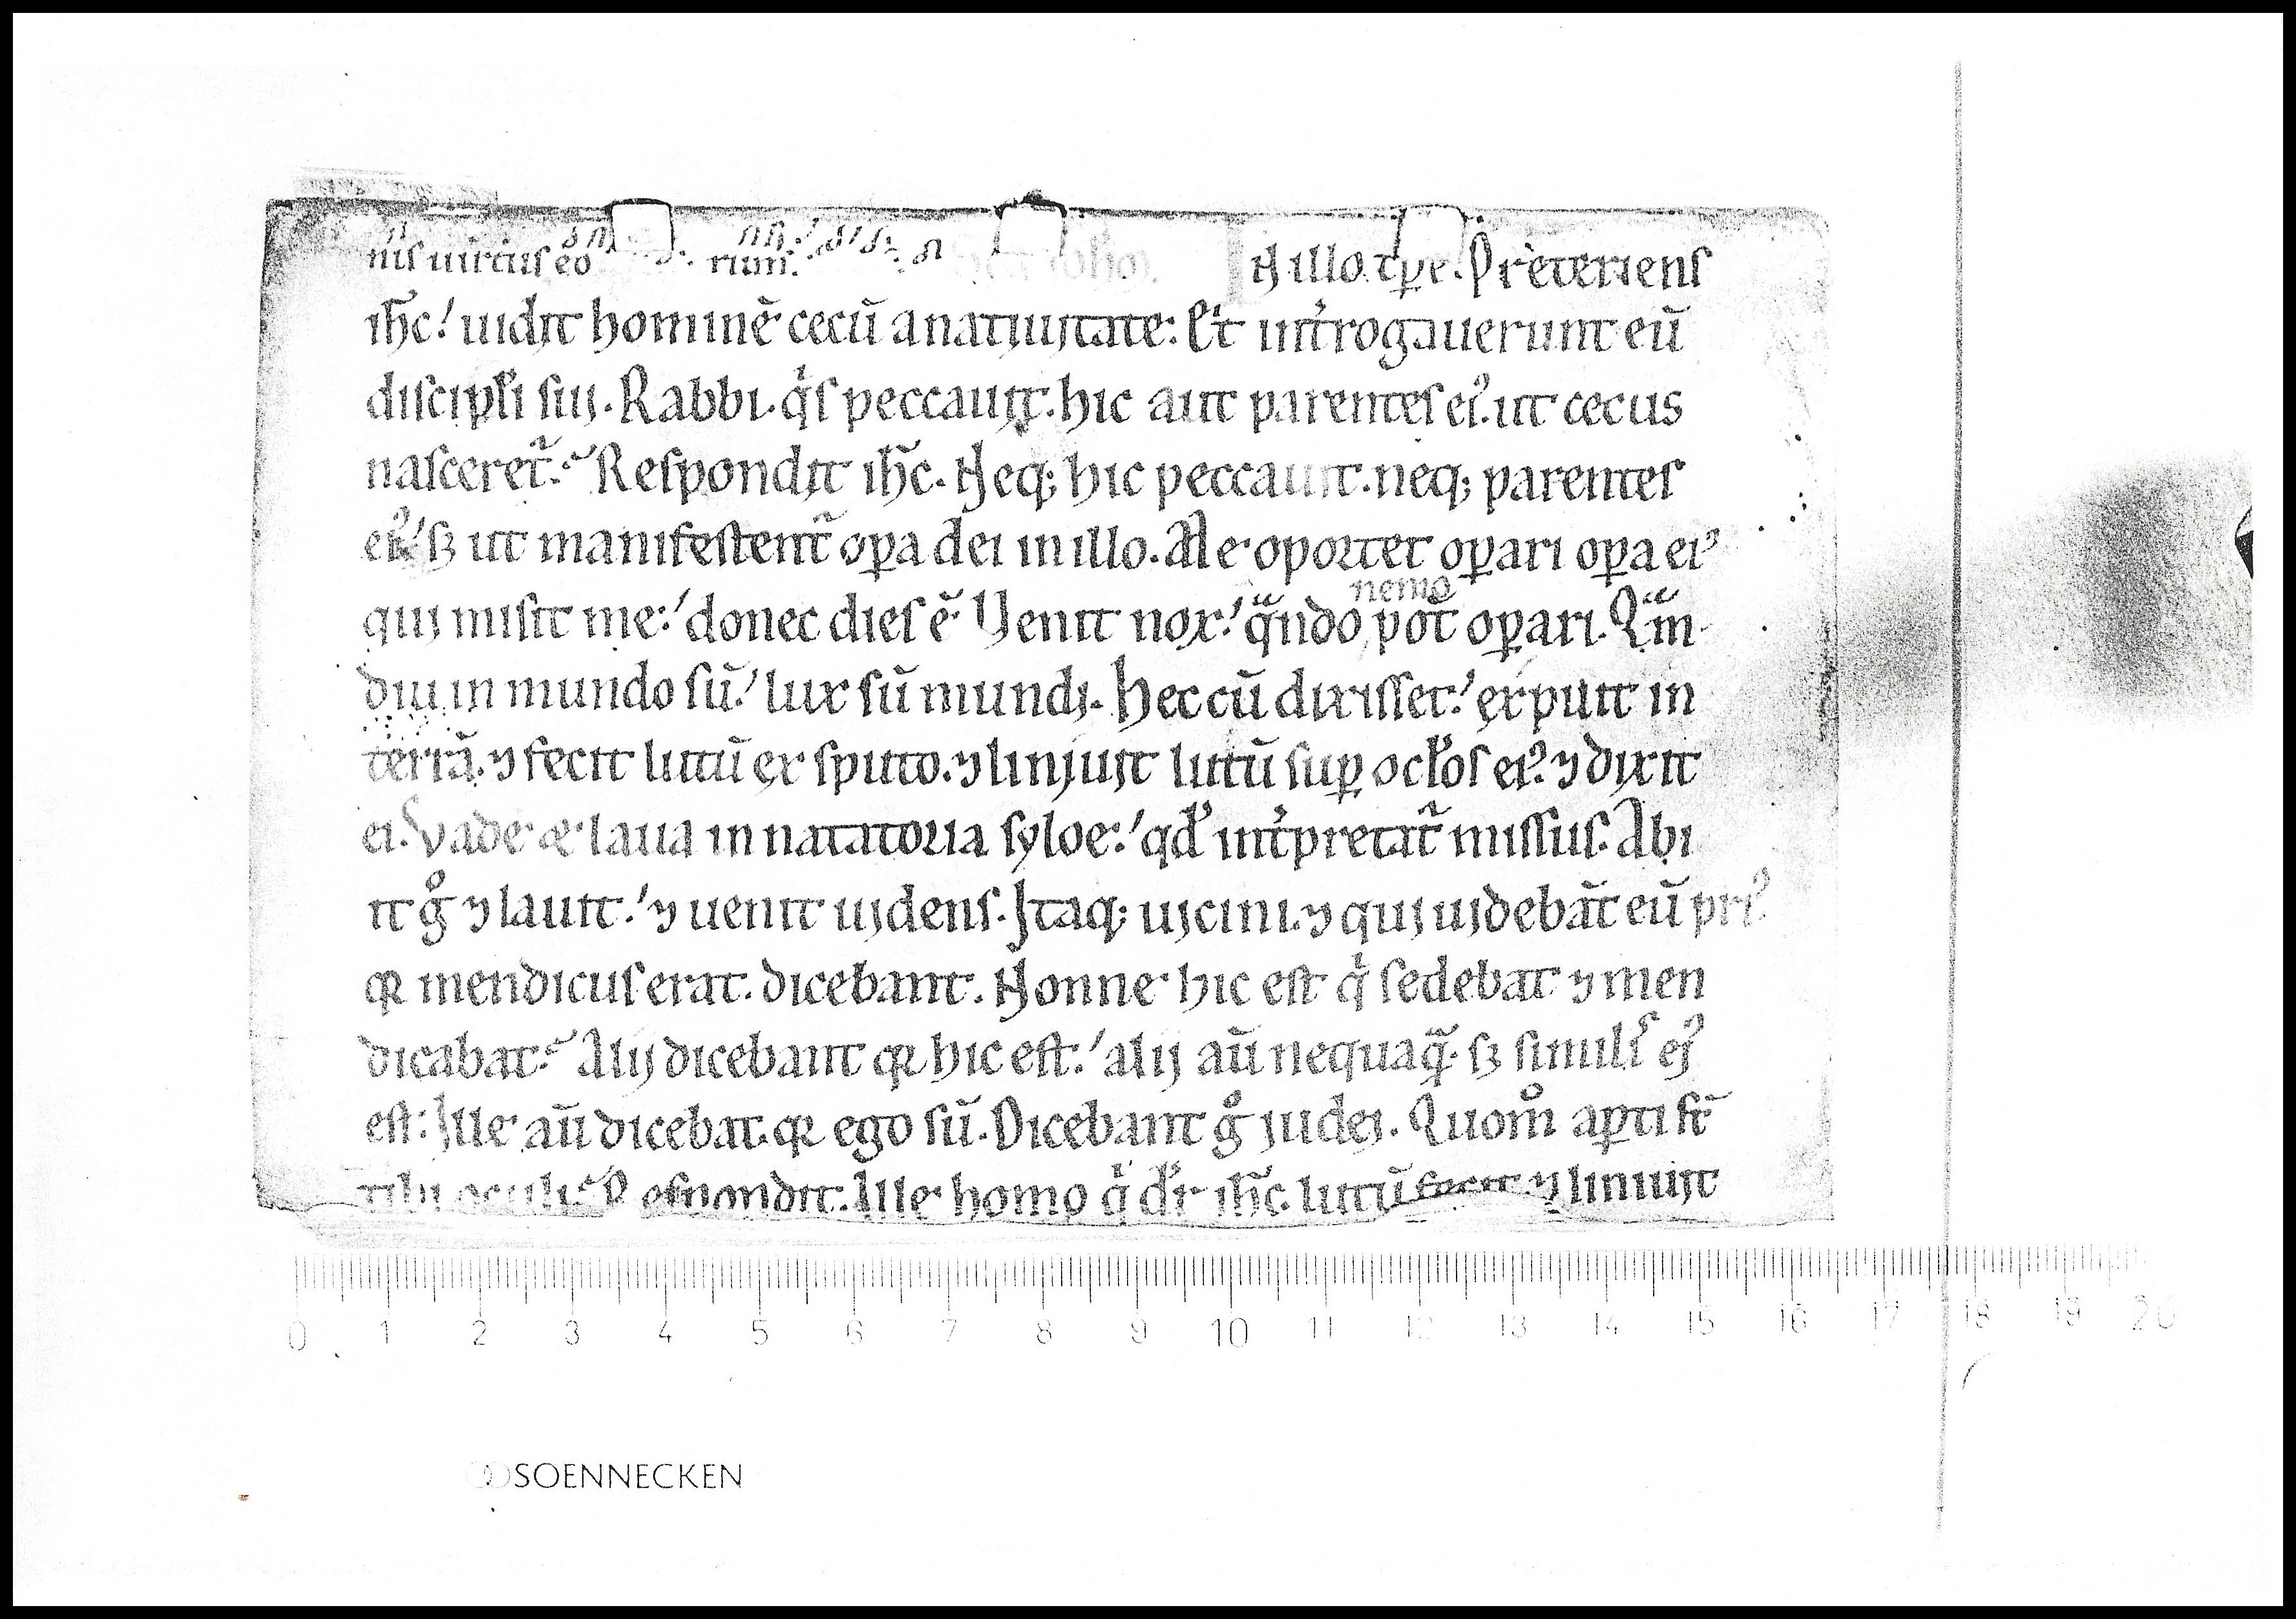 nis uirtus eo rum. N illo tꝑe. Preteriens
ihc̄! uidit hominē cecū a natiuitate: Et int̓rogauerunt eū
discipłi sui. Rabbi. qͥs peccauit. hic aut parentes eiꝰ. ut cecus
nasceret᷑? Respondit ihc̄. Neq; hic peccauit. neq; parentes
eiꝰ! sꝫ ut manifestent᷑ oꝑa dei in illo. Me oportet oꝑari oꝑa eiꝰ
qui misit me! donec dies ē. Uenit nox! qͣndo nemo pot̄ oꝑari. Qͣm
diu in mundo sū! lux sū mundi. Hec cū dixisset! expuit in
terrā. ⁊ fecit lutū ex sputo. ⁊ liniuit lutū suꝑ ocłos eiꝰ. ⁊ dixit
ei. Vade et laua in natatoria syloe! qd̓ int̓pretat᷑ missus. Abi
it gͦ ⁊ lauit! ⁊ uenit uidens. Itaq; uicini. ⁊ qui uidebāt eū priꝰ
qꝛ mendicus erat. dicebant. Nonne hic est qͥ sedebat ⁊ men
dicabat? Alij dicebant qꝛ hic est! alij aū nequaqͣ. sꝫ similis eiꝰ
est: Ille aū dicebat. qꝛ ego sū. Dicebant gͦ iudei. Quomͦ aꝑti st̄
tibi oculi? Respondit. Ille homo qͥ dr̄ ihc̄. lutū fecit ⁊ liniuit
0 1 2 3 4 5 6 7 8 9 10 11 12 13 14 15 16 17 18 19 20
SOENNECKEN